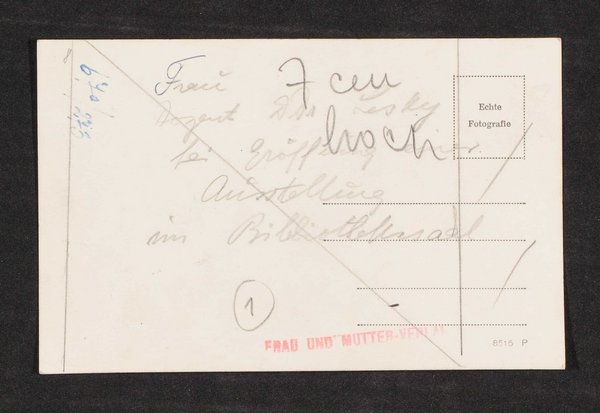 Frau 7 cm
Dozent Dr. Lesky hoch
bei Eröffnung einer
Ausstellung
im Bibliotheksaal
Echte
Fotografie
1
FRAU UND MUTTER-VERLAG
8515 P